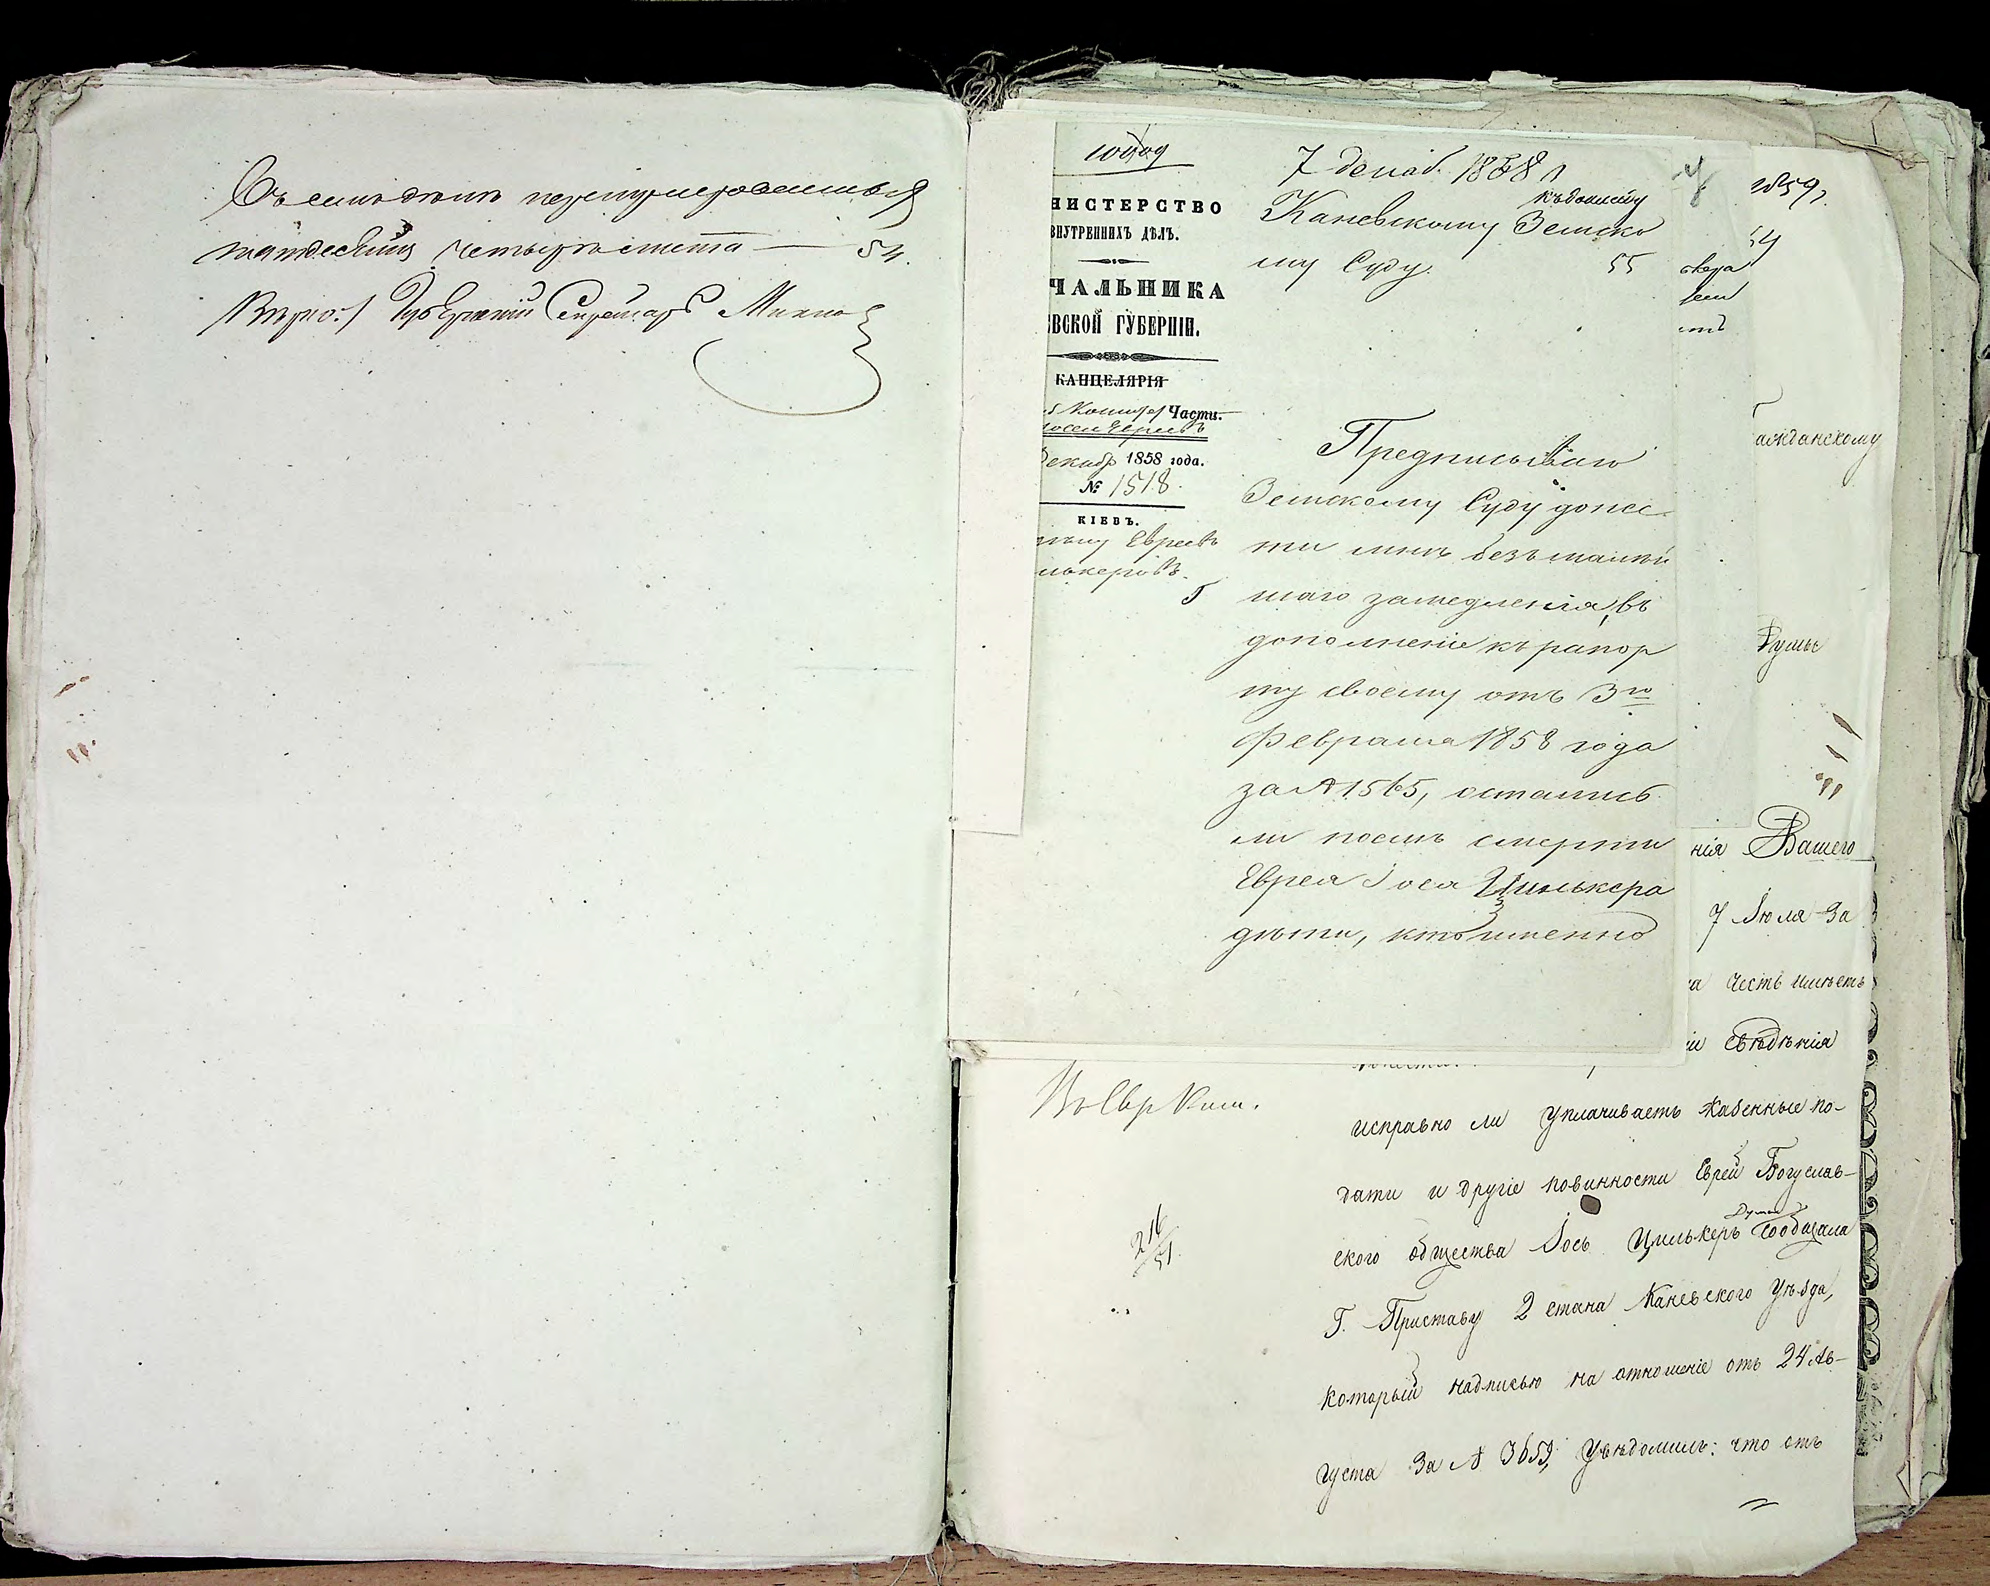 Въ семъ дѣлѣ перенумерованныхъ
пятьдесятъ четыре листа — 54.
Губернскій Секретарь
7 декаб. 1858
къ дѣлу
НИСТЕРСТВО
ВНУТРЕННИХЪ ДѢЛЪ.
ЧАЛЬНИКА
ВСКОЙ ГУБЕРНІИ.
КАНЦЕЛЯРІЯ
Части.
Декабр 1858 года.
№ 1518.
КІЕВЪ.
Евреѣ
лькерѣ.
5
Каневскому Земско
му Суду.
55
Предписываю
Земскому Суду донес
ти мнѣ безъ малѣй
шаго замедленія, въ
дополненіе къ рапор
ту своему отъ 3го
Февраля 1858 года
за № 1565, остались
ли послѣ смерти
Еврея Іося Цилькера
дѣти, кто именно
1859
54
ажданскому
Думы
нія Вашего
7 Іюля за
на честь имѣетъ
свѣдѣнія
Въ Евр Ком.
исправно ли уплачиваетъ казенные по-
дати и другіе повинности Еврей Богуслав-
ского общества Іось Цилькеръ Дума сообщала
Г. Приставу 2 стана Каневского уѣзда,
который надписью на отношеніе отъ 24 Ав-
густа за № 3659, увѣдомилъ: что отъ
216
51